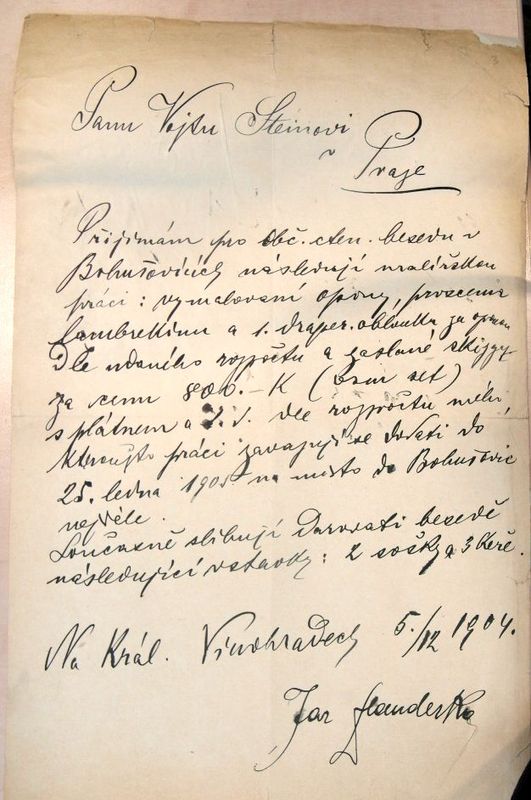 Panu Vojtu Steinovi
v
Praze
Přijímám pro obč. čten. besedu v
Bohušovicích následují malířskou
práci: vymalování opony, proscenia
lambrekinu a 1. draper. oblouku za oponu
Dle udaného rozpočtu a zaslané skizzy
za cenu 800.- K (osm set)
s plátnem a t. d. dle rozpočtu mého,
kteroužto práci zavazuji se dodati do
25. ledna 1905 na místo do Bohušovic
nejdéle.
Současně slibuji darovati besedě
následující vstavky: 2 sošky a 3 keře.
Na Král. Vinohradech 5./12 1904.
Jar